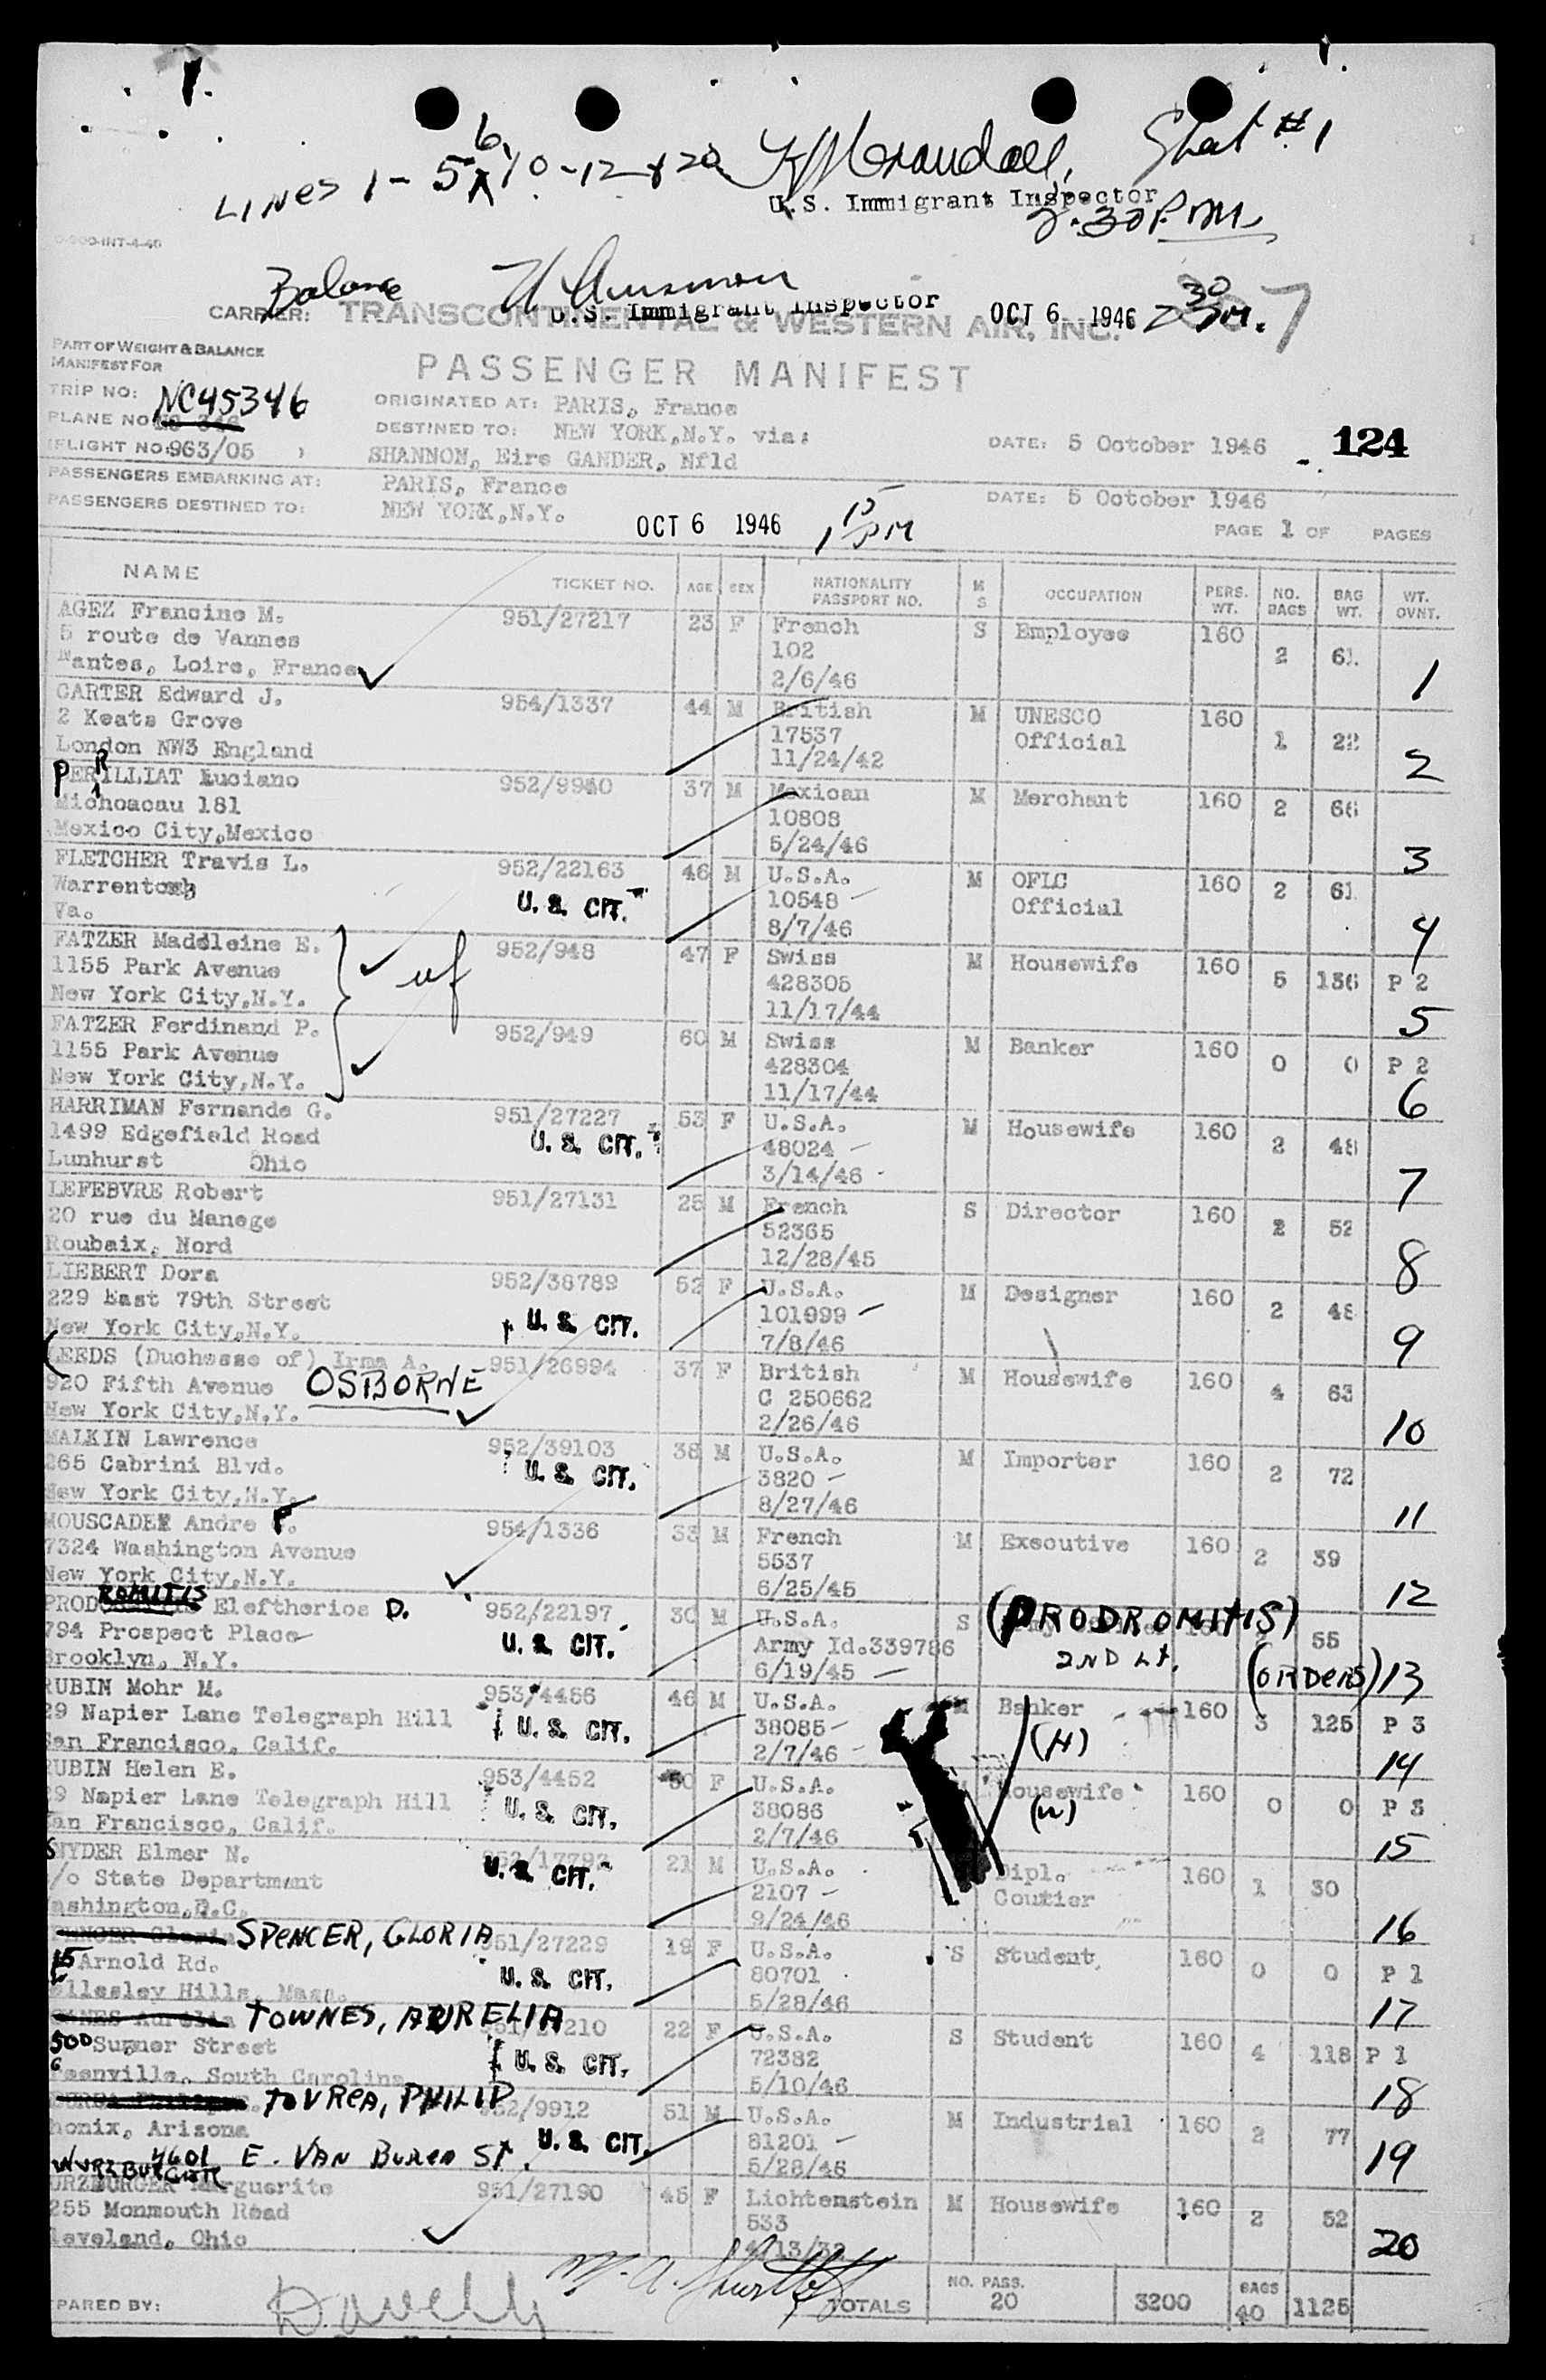 LINES 1-5 6 10-12 & 20 Sheet #1
U.S. Immigrant Inspector
2:30 P.M.
Balance
U.S. Immigrant Inspector OCT 6 1946 2 30 PM.
CARRIER: TRANSCONTINENTAL & WESTERN AIR, INC. 7
PART OF WEIGHT & BALANCE
MANIFEST FOR
PASSENGER MANIFEST
TRIP NO: NC45346 ORIGINATED AT: PARIS, France
PLANE NO: DESTINED TO: NEW YORK,N.Y. via:
FLIGHT NO: 963/05 SHANNON, Eire GANDER, Nfld DATE: 5 October 1946 124
PASSENGERS EMBARKING AT: PARIS, France DATE: 5 October 1946
PASSENGERS DESTINED TO: NEW YORK,N.Y. OCT 6 1946 1 15 PM PAGE 1 OF PAGES
NAME TICKET NO. AGE SEX NATIONALITY PASSPORT NO. M S OCCUPATION PERS. WT. NO. BAGS BAG WT. WT. OVNT.
AGEZ Francine M. 951/27217 23 F French S Employee 160
5 route de Vannes 102 2 61
Nantes, Loire, France 2/6/46 1
CARTER Edward J. 954/1337 44 M British M UNESCO 160
2 Keats Grove 17537 Official 1 22
London NW3 England 11/24/42 2
PERRILLIAT Luciano 952/9950 37 M Mexican M Merchant 160 2 66
Michoacau 181 10808
Mexico City,Mexico 5/24/46 3
FLETCHER Travis L. 952/22163 46 M U.S.A. M OFLC 160 2 61
Warrenton U. S. CIT. 10548 Official
Va. 8/7/46 4
FATZER Madeleine E. 952/948 47 F Swiss M Housewife 160
1155 Park Avenue 428305 5 136 P 2
New York City,N.Y. 11/17/44 5
FATZER Ferdinand P. 952/949 60 M Swiss M Banker 160
1155 Park Avenue 428304 0 0 P 2
New York City,N.Y. 11/17/44 6
HARRIMAN Fernande G. 951/27227 53 F U.S.A. M Housewife 160
1499 Edgefield Road U. S. CIT. 48024 2 48
Lunhurst Ohio 3/14/46 7
LEFEBVRE Robert 951/27131 25 M French S Director 160
20 rue du Manege 52365 2 52
Roubaix, Nord 12/28/45 8
LIEBERT Dora 952/38789 52 F U.S.A. M Designer 160
229 East 79th Street U. S. CIT. 101999 2 48
New York City,N.Y. 7/8/46 9
LEEDS (Duchesse of) Irma A. 951/26994 37 F British M Housewife 160
920 Fifth Avenue OSBORNE C 250662 4 63
New York City,N.Y. 2/26/46 10
MALKIN Lawrence 952/39103 38 M U.S.A. M Importer 160
265 Cabrini Blvd. U. S. CIT. 3820 2 72
New York City,N.Y. 8/27/46 11
MOUSCADET Andre F. 954/1336 33 M French M Executive 160
7324 Washington Avenue 5537 2 39
New York City,N.Y. 6/25/45 12
PRODROMITIS Eleftherios D. 952/22197 30 M U.S.A. S (PRODROMITIS)
794 Prospect Place U. S. CIT. Army Id.339786 2ND Lt. 55
Brooklyn, N.Y. 6/19/45 (ORDERS) 13
RUBIN Mohr M. 953/4456 46 M U.S.A. M Banker 160
29 Napier Lane Telegraph Hill U. S. CIT. 38085 (H) 3 125 P 3
San Francisco, Calif. 2/7/46 14
RUBIN Helen E. 953/4452 50 F U.S.A. Housewife 160
29 Napier Lane Telegraph Hill U. S. CIT. 38086 (W) 0 0 P 3
San Francisco, Calif. 2/7/46 15
SNYDER Elmer N. U. S. CIT. 21 M U.S.A. Dipl. 160
c/o State Department 2107 Coutier 1 30
Washington,D.C. 9/24/46 16
SPENCER, GLORIA 951/27229 19 F U.S.A. S Student 160
15 Arnold Rd. U. S. CIT. 80701 0 0 P 1
Wellesley Hills, Mass. 5/28/46 17
TOWNES, AURELIA 22 F U.S.A. S Student 160
500 Sumner Street U. S. CIT. 72382 4 118 P 1
Greenville, South Carolina 5/10/46 18
TOVREA, PHILIP 952/9912 51 M U.S.A. M Industrial 160
Phonix, Arizona U. S. CIT. 81201 2 77
4601 E. VAN BUREN ST. 5/28/46 19
WURZBURGER Marguerite 951/27190 45 F Lichtenstein M Housewife 160
255 Monmouth Road 533 2 52
Cleveland, Ohio 4/13/32 20
PREPARED BY: TOTALS NO. PASS. 20 3200 BAGS 40 1125